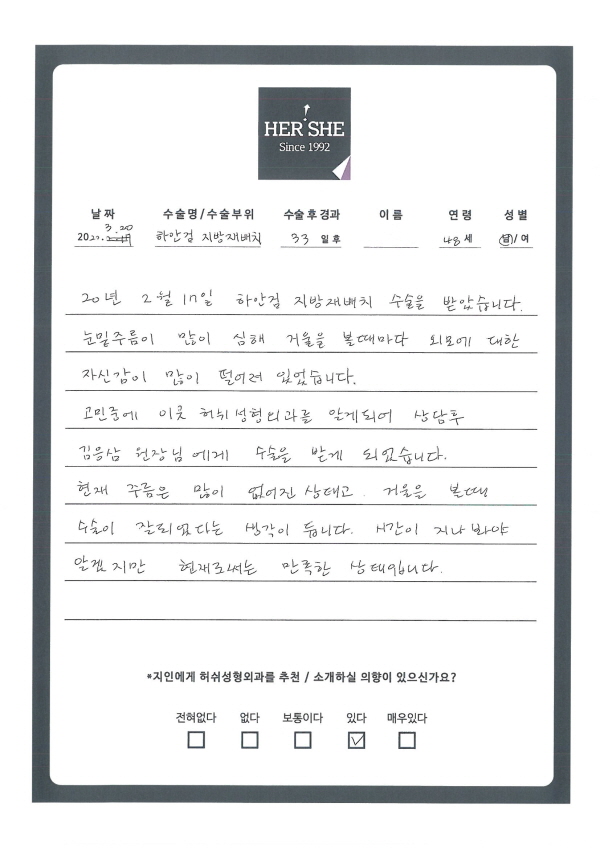 HER SHE
Since 1992
날 짜 수술명/수술부위 수술 후 경과 이 름 연 령 성 별
3.20
20 하안검 지방재배치 33 일 후 48 세 남/ 여
20년 2월 17일 하안검 지방재배치 수술을 받았습니다.
눈밑주름이 많이 심해 거울을 볼때마다 외모에 대한
자신감이 많이 떨어져 있었습니다.
고민중에 이곳 허쉬성형외과를 알게되어 상담후
김응삼 원장님에게 수술을 받게 되었습니다.
현재 주름은 많이 없어진 상태고. 거울을 볼때
수술이 잘되었다는 생각이 듭니다. 시간이 지나봐야
알겠지만 현재로써는 만족한 상태입니다.
*지인에게 허쉬성형외과를 추천 / 소개하실 의향이 있으신가요?
전혀없다 없다 보통이다 있다 매우있다